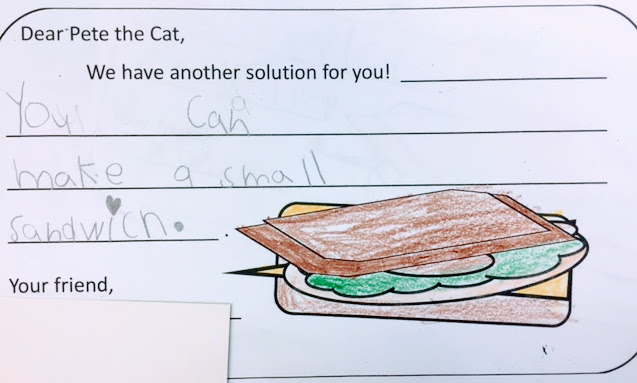 Dear Pete the Cat,
We have another solution for you!
You can
make a small
sandwich.
Your friend,